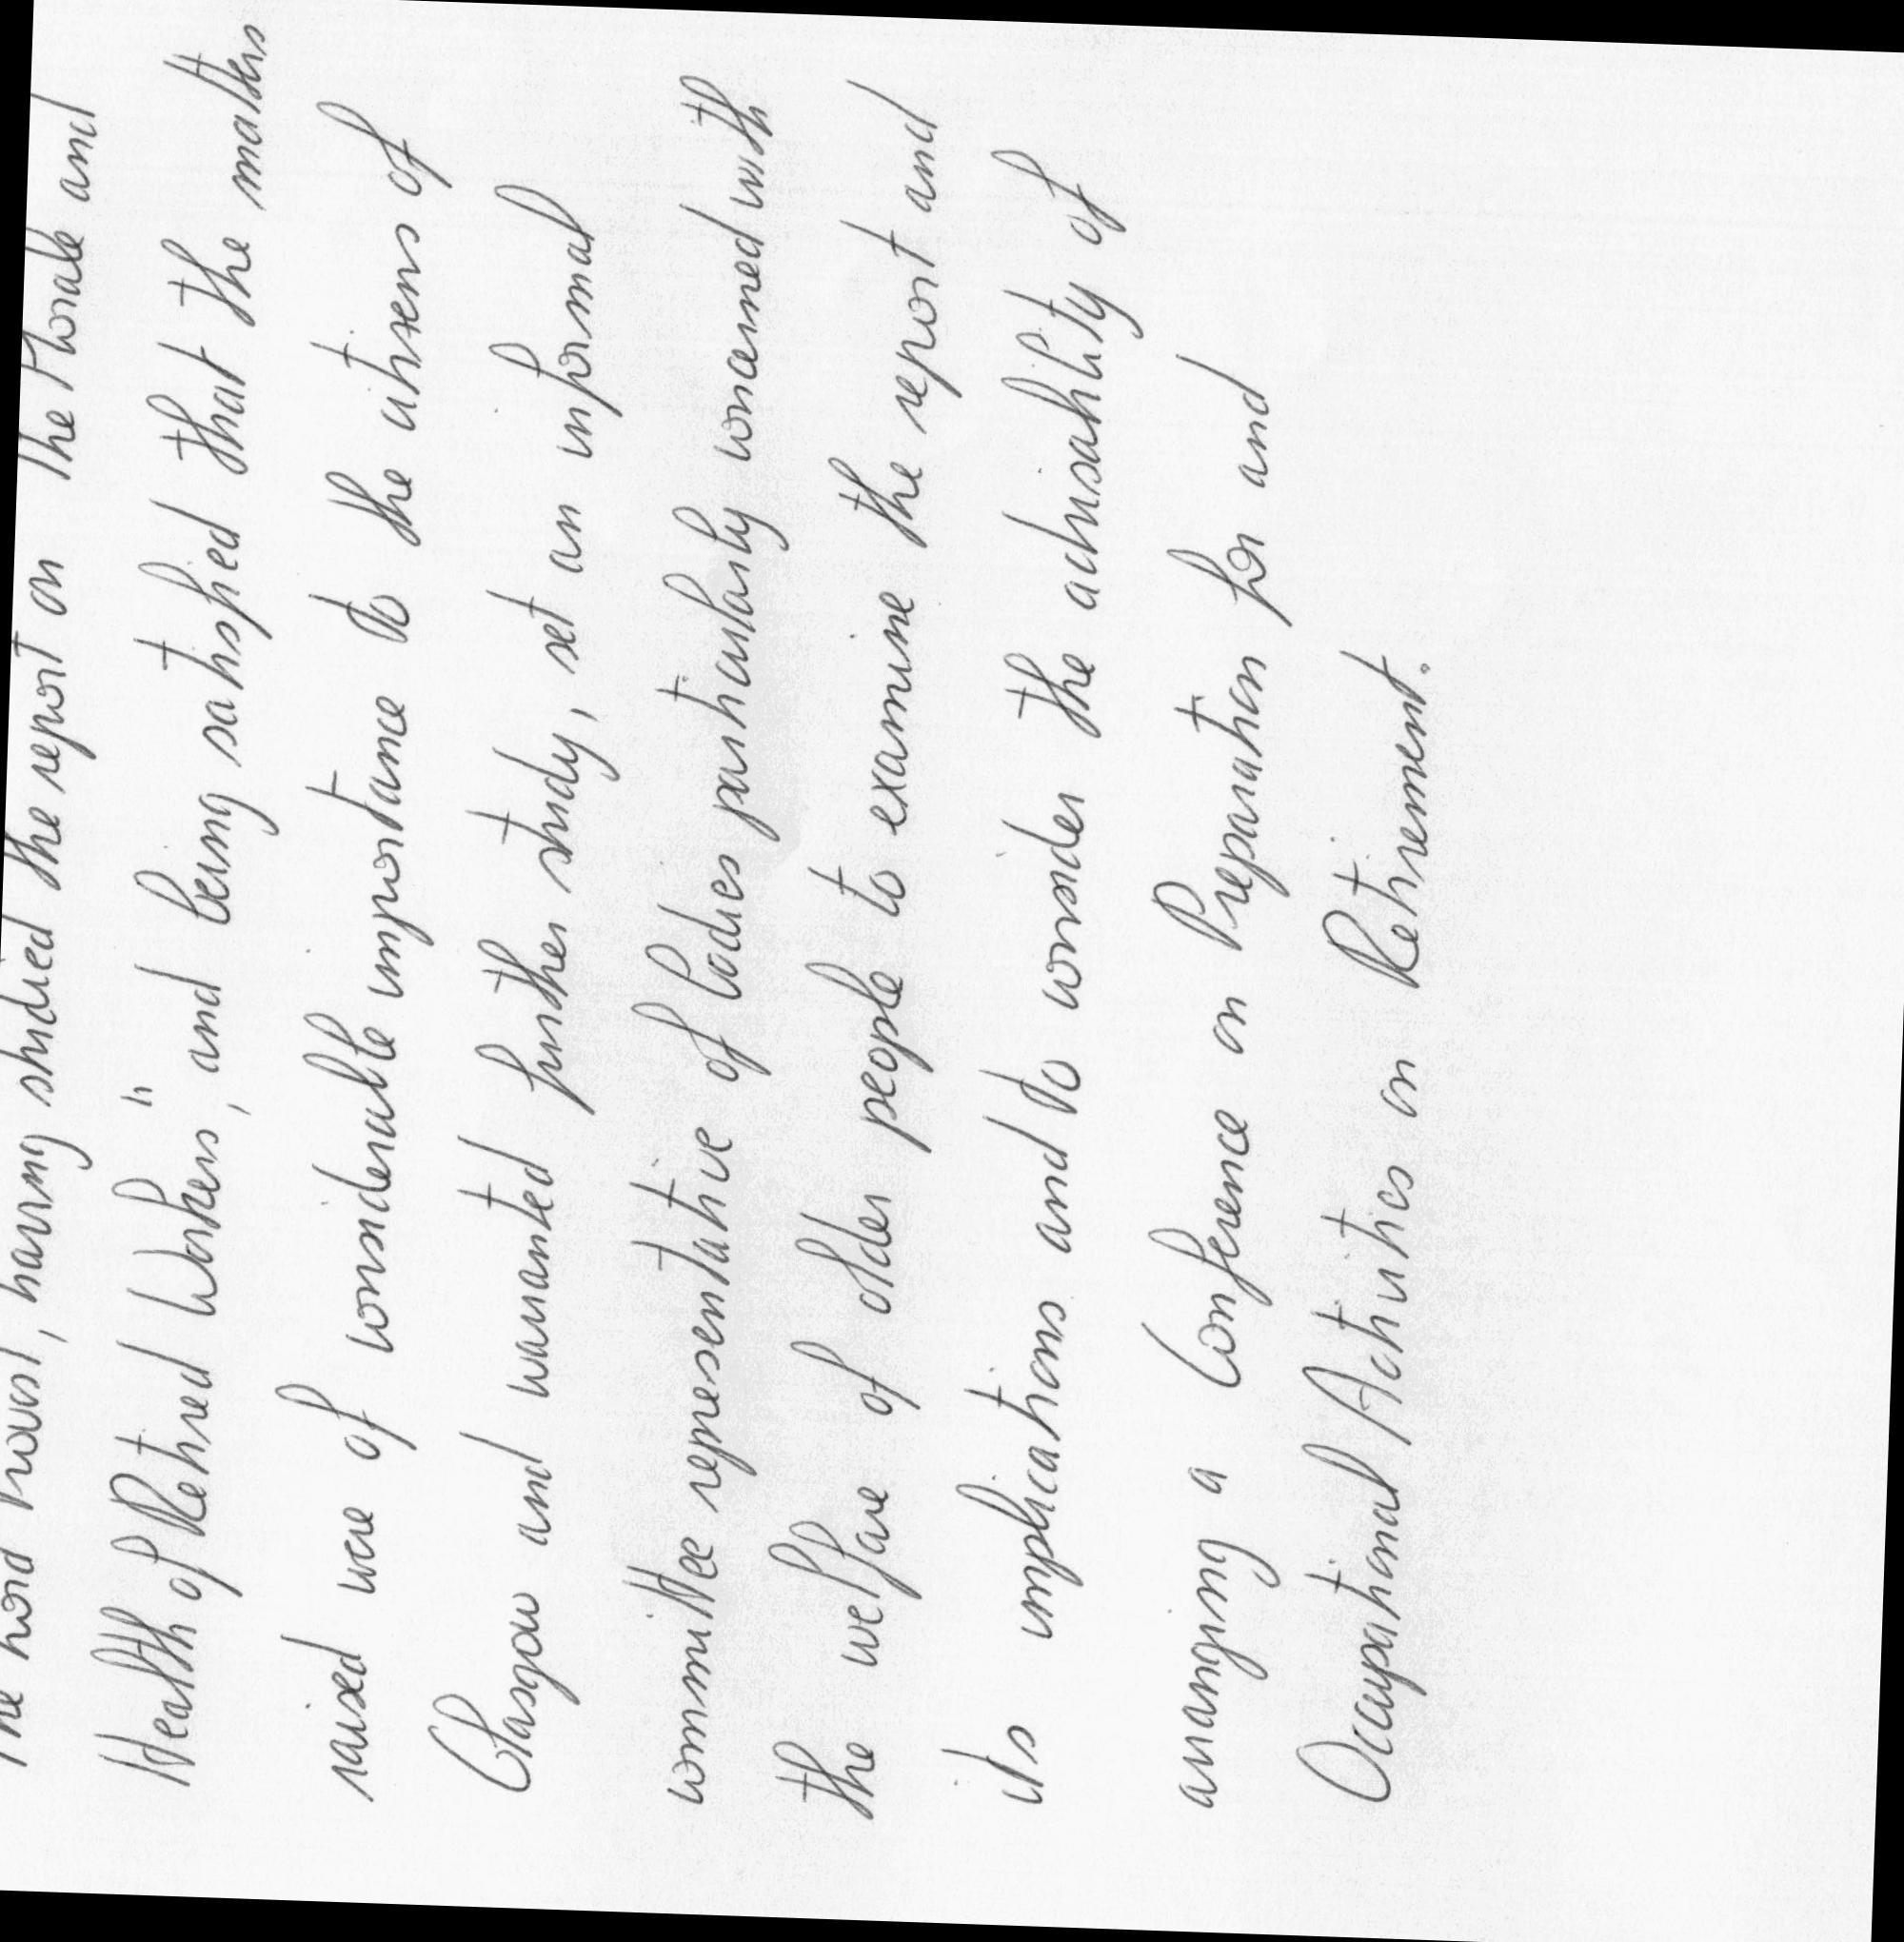 The Lord Provost, having studied the report on "The Morale and
Health of Retired Workers," and being satisfied that the matters
raised were of considerable importance to the citizens of
Glasgow and warranted further study, set an informal
committee representative of bodies particularly concerned with
the welfare of older people to examine the report and
its implications and to consider the advisability of
arranging a Conference on Preparation for and
Occupational Activities on Retirement.